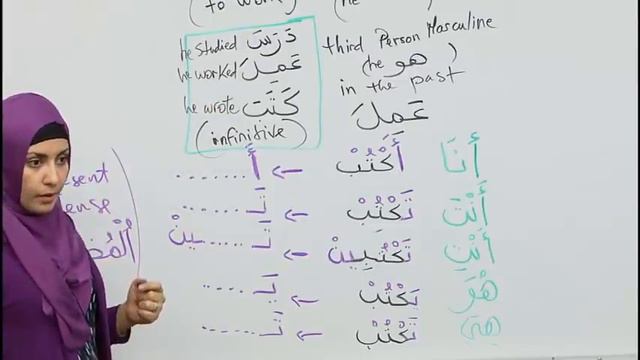 (to work) (he )
he studied دَرَسَ
he worked عَمِلَ
he wrote كَتَبَ
(infinitive)
third Person Masculine
(he هو )
in the past
عَمَلَ
أَنَا أَكْتُبْ ← أَ ........
أَنْتَ تَكْتُبْ ← تَـ ......
أَنْتِ تَكْتُبِينْ ← تَـ ......ـِينْ
هُوَ يَكْتُبْ ← يَـ ......
هِيَ تَكْتُبْ ← تَـ ......
esent
ense